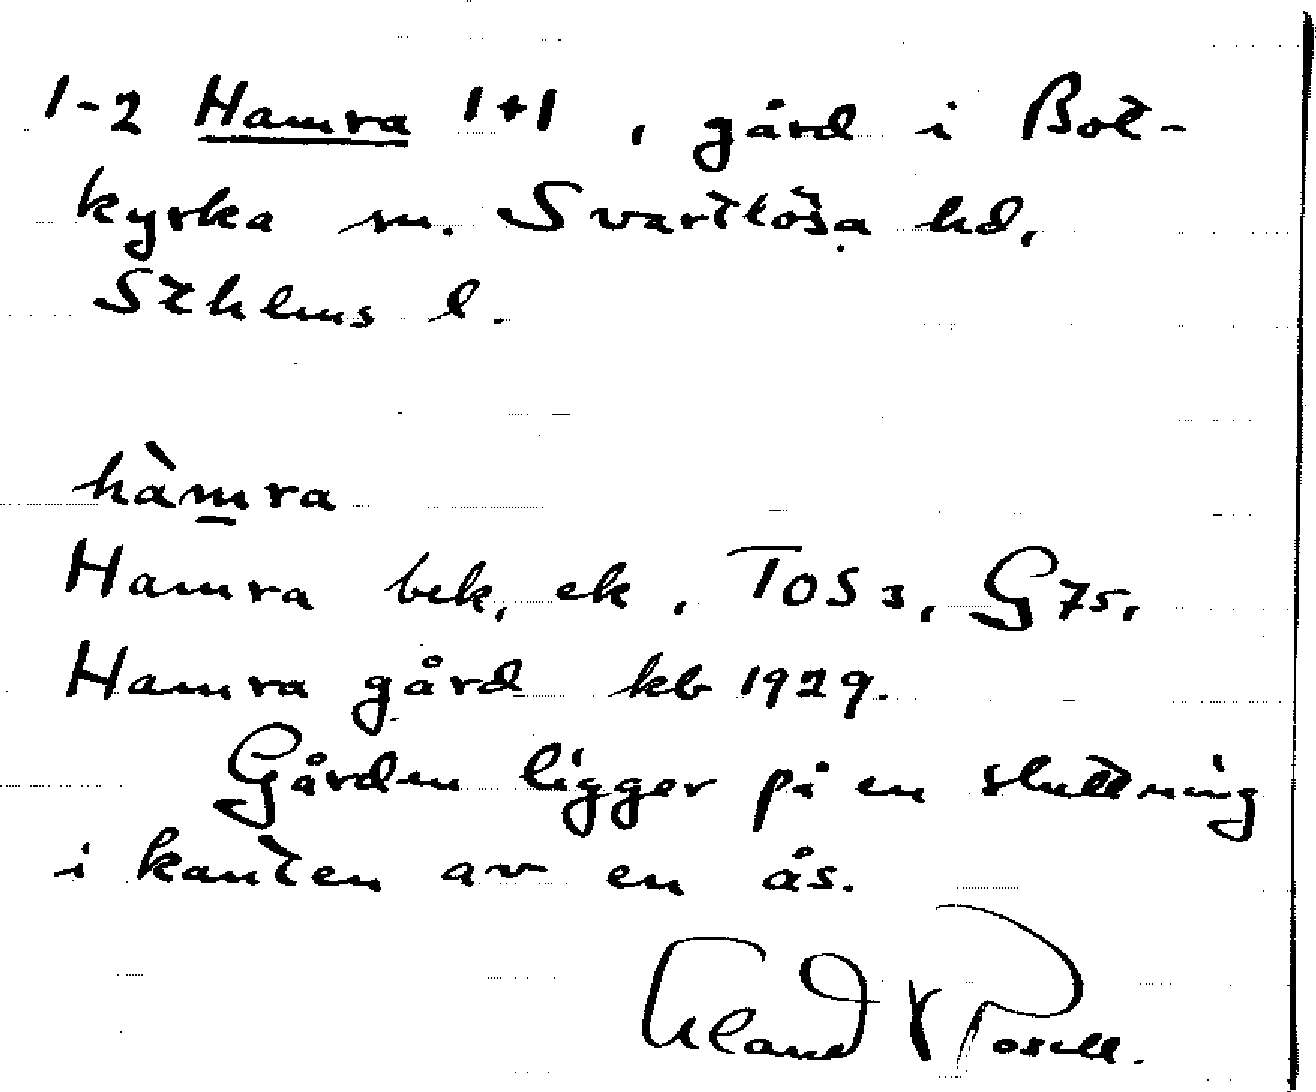 1-2 Hamra 1+1, gård i Bot-
kyrka sn. Svartlösa hd,
Sthlms l.
hàmra
Hamra bek, ek, TOS 3, G75,
Hamra gård kb 1929.
Gården ligger på en sluttning
i kanten av en ås.